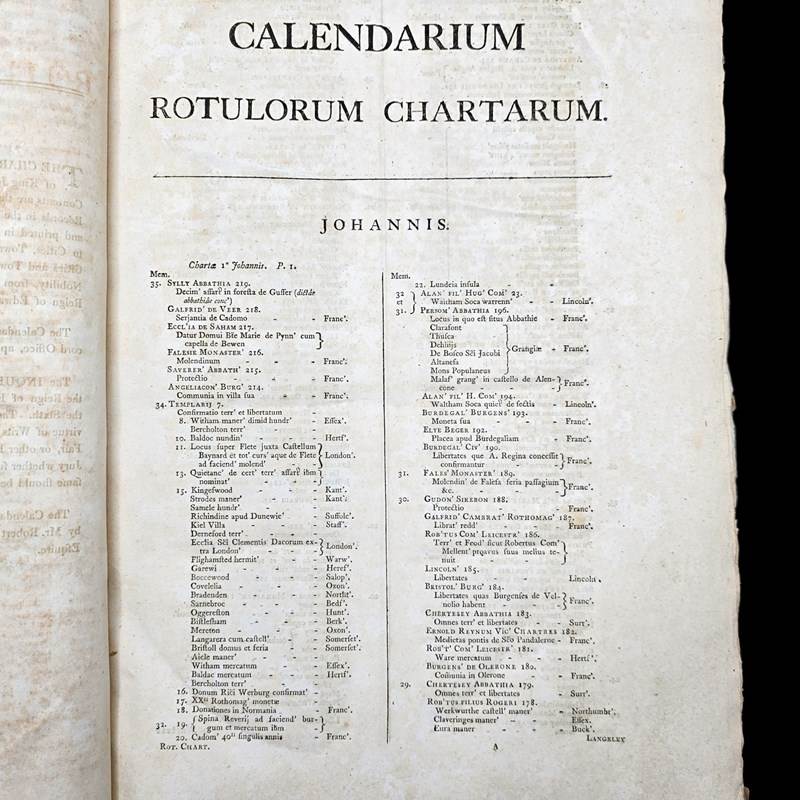 CALENDARIUM
ROTULORUM CHARTARUM.
JOHANNIS.
Chartæ 1º Johannis. P. 1.
Mem.
35. SYLLY ABBATHIA 219.
Decim' assart' in foresta de Guffer (dictæ
abbathiæ conc')
GALFRID' DE VEER 218.
Serjantia de Cadomo - - Franc'.
ECCL'IA DE SAHAM 217.
Datur Domui Bte Marie de Pynn' cum
capella de Bewen
FALESIE MONASTER' 216.
Molendinum - - - Franc'.
SAVERER' ABBATH' 215.
Protectio - - - Franc'.
ANGELIACON' BURG' 214.
Communia in villa sua - - Franc'.
34. TEMPLARIJ 7.
Confirmatio terr' et libertatum -
8. Witham maner' dimid hundr' - Essex'.
Bercholton terr'
10. Baldoc nundin' - - - Hertf'.
11. Locus super Flete juxta Castellum
Baynard et tot' curs' aque de Flete
ad faciend' molend' - - London'.
13. Quietanc' de cert' terr' assart' ibm
nominat' - -
15. Kingeswood - - - Kant'.
Strodes maner' - - - Kant'.
Samele hundr' - - -
Richindine apud Dunewic' - Suffolc'.
Kiel Villa - - - Staff'.
Derneford terr' - - -
Ecclia Sci Clementis Dacorum ex-
tra London' - - - London'.
Flighamsted hermit' - - Warw'.
Garewi - - - Heref'.
Boccewood - - - Salop'.
Covelelia - - - Oxon'.
Bradenden - - - Northt'.
Sarnebroc - - - Bedf'.
Oggereston - - - Hunt'.
Bistlesham - - - Berk'.
Mereton - - - Oxon'.
Langarera cum castell' - - Somerset'.
Bristoll domus et feria - - Somerset'.
Aiele maner' - - -
Witham mercatum - - Essex'.
Baldac mercatum - - Hertf'.
Bercholton terr' - - -
16. Donum Rici Werburg confirmat' -
17. XXli Rothomag' monetæ -
18. Donationes in Normania - - Franc'.
32. 19. Spina Reverij ad faciend' bur-
gum et mercatum ibm -
20. Cadom' 40li singulis annis - Franc'.
ROT. CHART.
Mem.
22. Lundeia insula - -
32 et 31. ALAN' FIL' HUG' COM' 23.
Waltham Soca warrenn' - - Lincoln'.
PERSOM' ABBATHIA 196.
Locus in quo est situs Abbathie - Franc'.
Clarafont
Thusca
Dehlijs
De Bosco Sci Jacobi
Altanesa
Mons Populaneus
Grangiæ - Franc'.
Malas' grang' in castello de Alen-
cone - - - Franc'.
ALAN' FIL' H. COM' 194.
Waltham Soca quiet' de secta - Lincoln'.
BURDEGAL' BURGENS' 193.
Moneta sua - - - Franc'.
ELYE BEGER 192.
Placea apud Burdegaliam - Franc'.
BURDEGAL' CIV' 190.
Libertates que A. Regina concessit
confirmantur - - - Franc'.
31. FALES' MONASTER' 189.
Molendin' de Falesa feria passagium
&c. - - - Franc'.
30. GUDON' SIKEBON 188.
Protectio - - - Franc'.
GALFRID' CAMBRAT' ROTHOMAG' 187.
Librat' redd' - - - Franc'.
ROB'TUS COM' LEICESTR' 186.
Terr' et Feod' sicut Robertus Com'
Mellent' ptqavus suus melius te-
nuit - - -
LINCOLN' 185.
Libertates - - - Lincoln.
BRISTOL' BURG' 184.
Libertates quas Burgenses de Vel-
nolio habent - - - Franc'.
CHERTESEY ABBATHIA 183.
Omnes terr' et libertates - - Surr'.
ERNOLD REYNUM VIC' CHARTRES 182.
Medietas pontis de Sco Pandalerne - Franc'.
ROB'T' COM' LEICESTR' 181.
Ware mercatum - - Hertf'.
BURGENS' DE OLERONE 180.
Comunia in Olerone - - Franc'.
29. CHERTESEY ABBATHIA 179.
Omnes terr' et libertates - - Surr'.
ROB'TUS FILIUS ROGERI 178.
Werkwurthe castell' maner' - Northumbr'.
Claveringes maner' - - Essex.
Eura maner' - - - Buck'.
A
LANGELEY